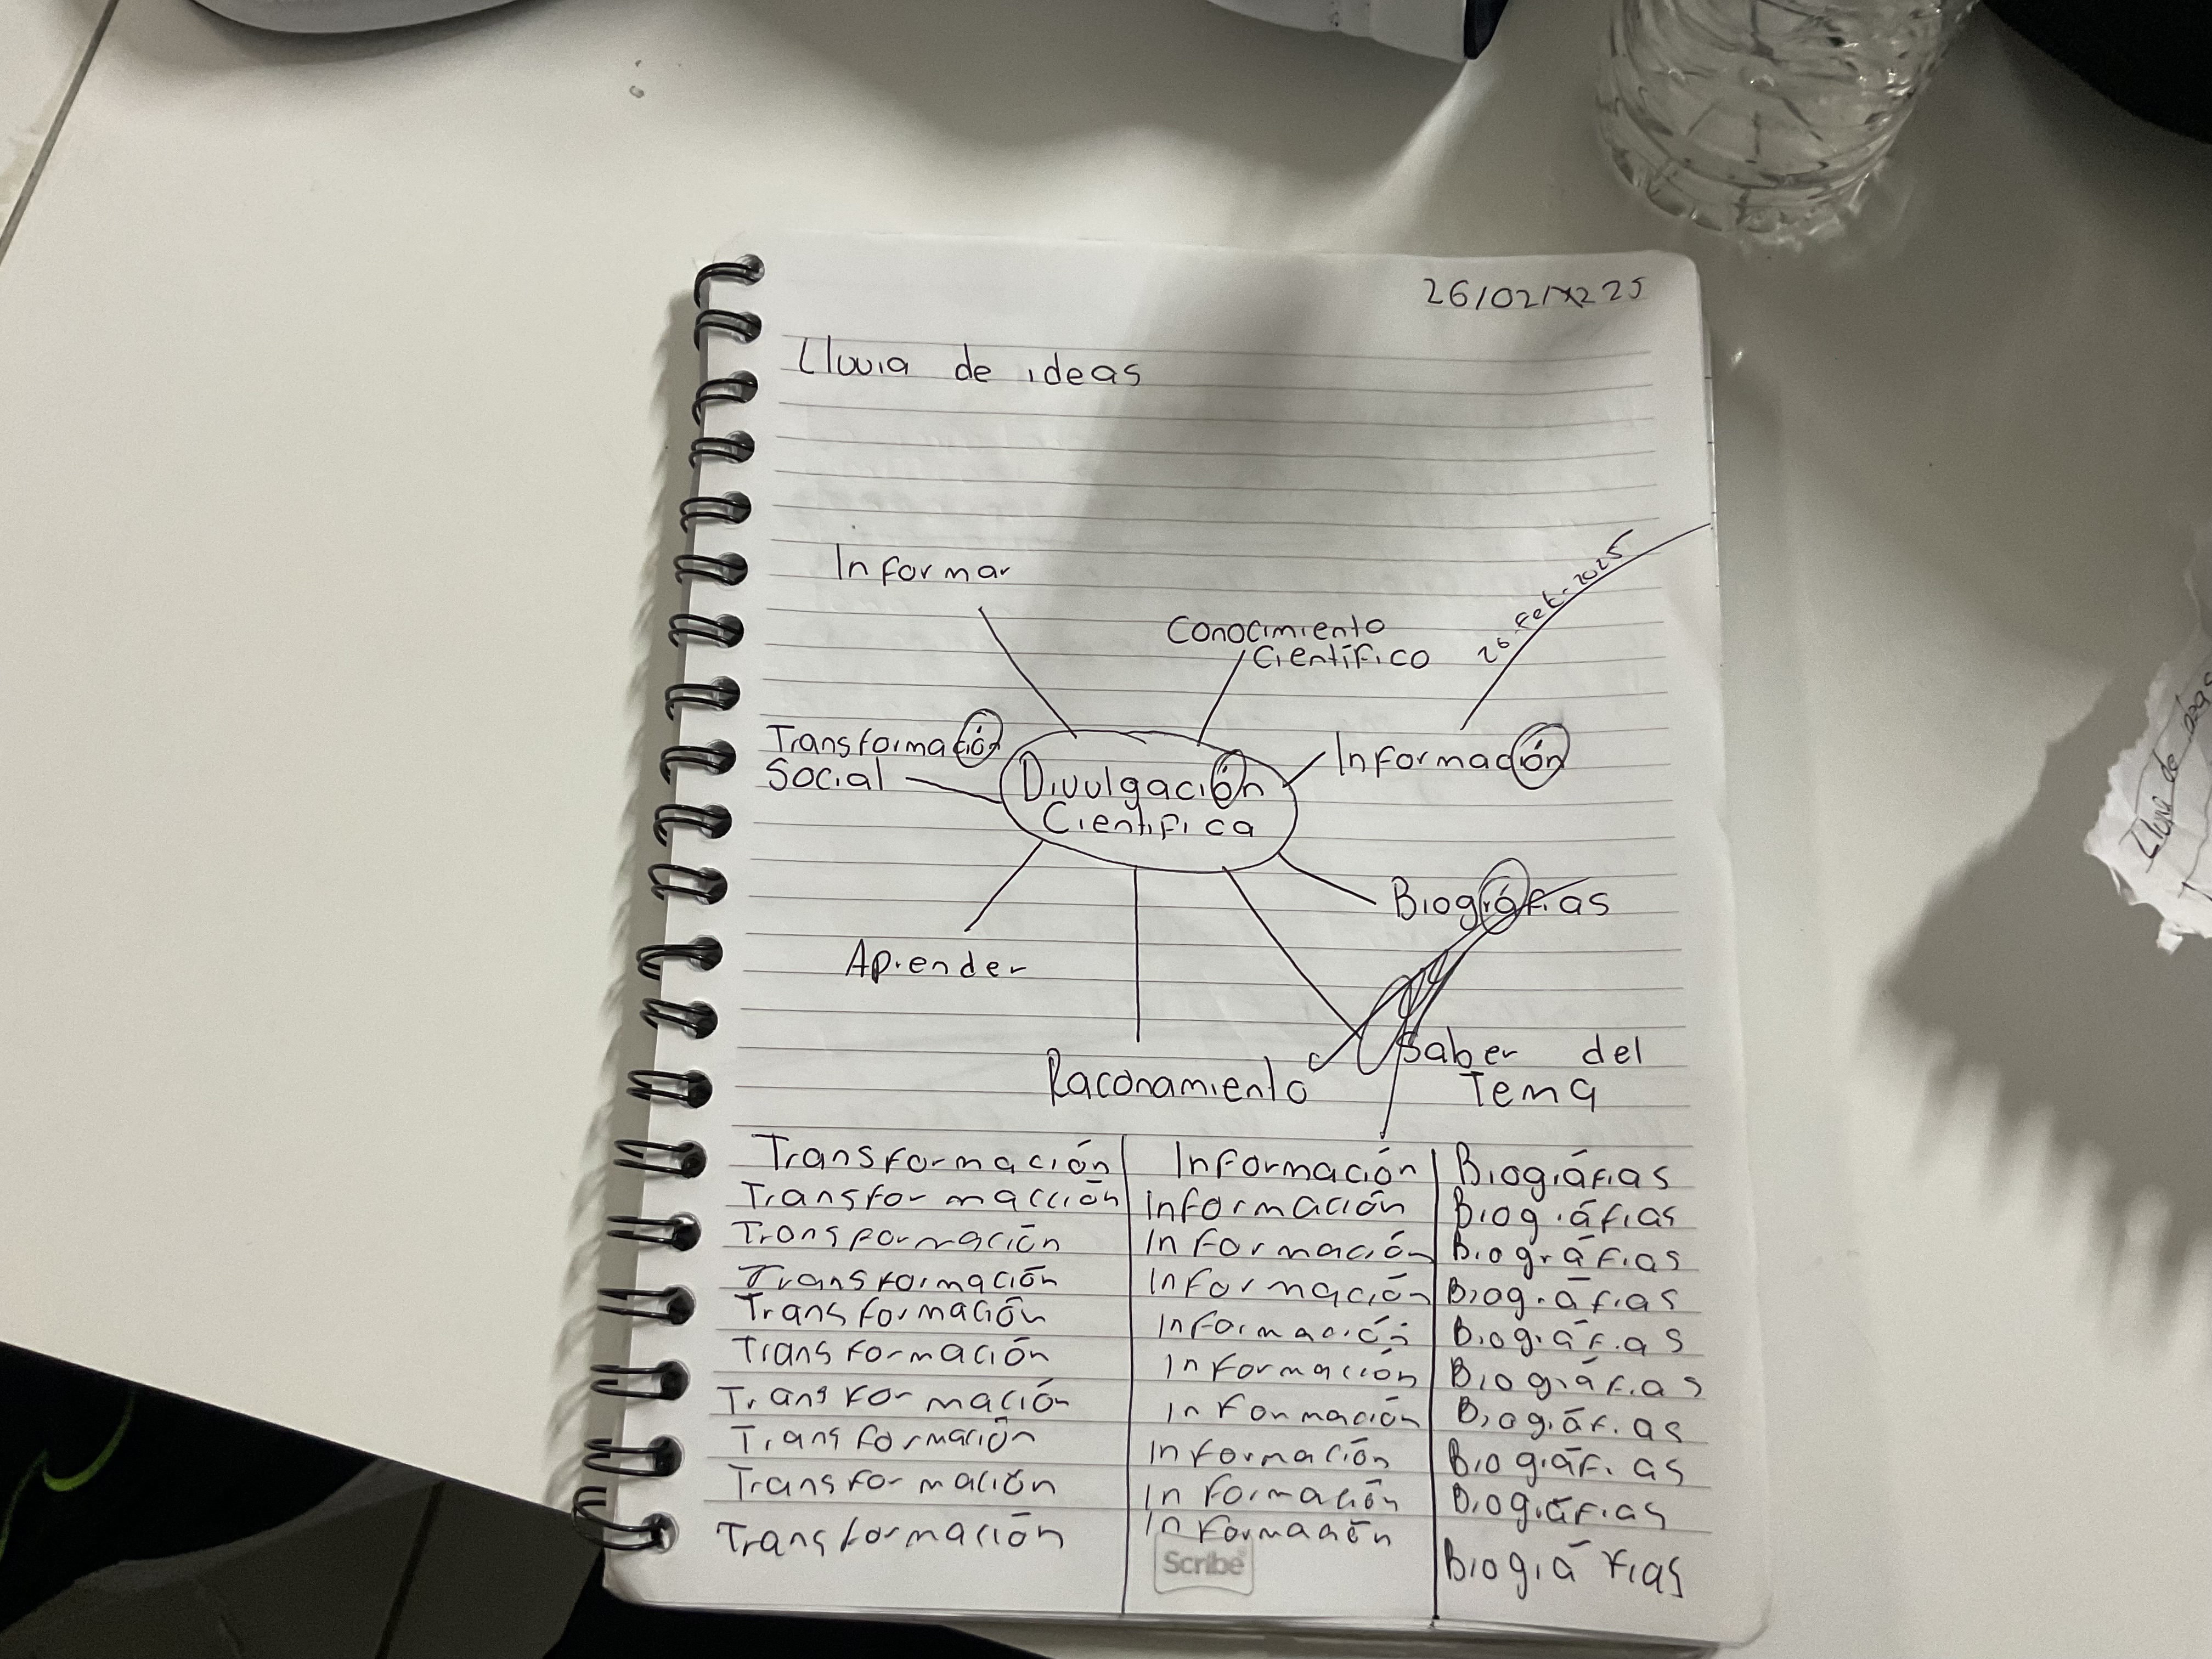 26/02/2025
Lluvia de ideas
Informar
Conocimiento
Científico
26-Feb-2025
Transformación
Social
Divulgación
Cientifica
Información
Biográfias
Aprender
Saber del
Tema
Raconamiento
Transformación Información Biográfias
Transformacción Información Biográfias
Transformación Información Biográfias
Transformación Información Biográfias
Transformación Información Biográfias
Transformación Información Biográfias
Transformación Información Biográfias
Transformación Información Biográfias
Transformación Información Biográfias
Transformación Información Biográfias
Scribe
Lluvia de ideas